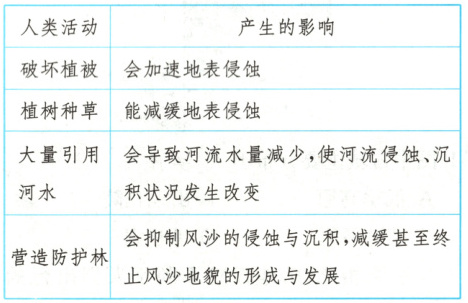 人类活动 产生的影响
破坏植被 会加速地表侵蚀
植树种草 能减缓地表侵蚀
大量引用 会导致河流水量减少,使河流侵蚀、沉
河水 积状况发生改变
营造防护林 会抑制风沙的侵蚀与沉积,减缓甚至终
止风沙地貌的形成与发展